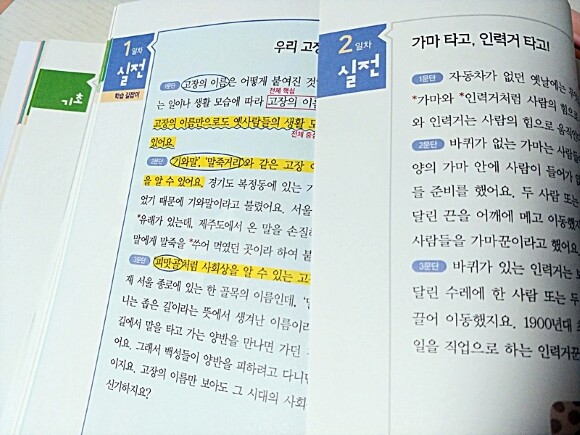 기초
1일차
실전
학습 길잡이
우리 고장
1문단 고장의 이름은 어떻게 붙여진 것
전체 핵심
는 일이나 생활 모습에 따라 고장의 이름
고장의 이름만으로도 옛사람들의 생활 모
전체 중심
있어요.
2문단 '기와말', '말죽거리'와 같은 고장 이
을 알 수 있어요. 경기도 복정동에 있는 기
었기 때문에 기와말이라고 불렸어요. 서울
*유래가 있는데, 제주도에서 온 말을 손질하
말에게 말죽을 *쑤어 먹였던 곳이라 하여 붙
3문단 피맛골처럼 사회상을 알 수 있는 고
재 서울 종로에 있는 한 골목의 이름인데,
니는 좁은 길'이라는 뜻에서 생겨난 이름이라
길에서 말을 타고 가는 양반을 만나면 가던
어요. 그래서 백성들이 양반을 피하려고 다니던
이지요. 고장의 이름만 보아도 그 시대의 사회
신기하지요?
2일차
실전
가마 타고, 인력거 타고!
1문단 자동차가 없던 옛날에는
*가마와 *인력거처럼 사람의 힘으
와 인력거는 사람의 힘으로 움직
2문단 바퀴가 없는 가마는 사람들
양의 가마 안에 사람이 들어가 앉
들 준비를 했어요. 두 사람 또는
달린 끈을 어깨에 메고 이동했지
사람들을 가마꾼이라고 했어요
3문단 바퀴가 있는 인력거는
달린 수레에 한 사람 또는 두
끌어 이동했지요. 1900년대 초
일을 직업으로 하는 인력거꾼